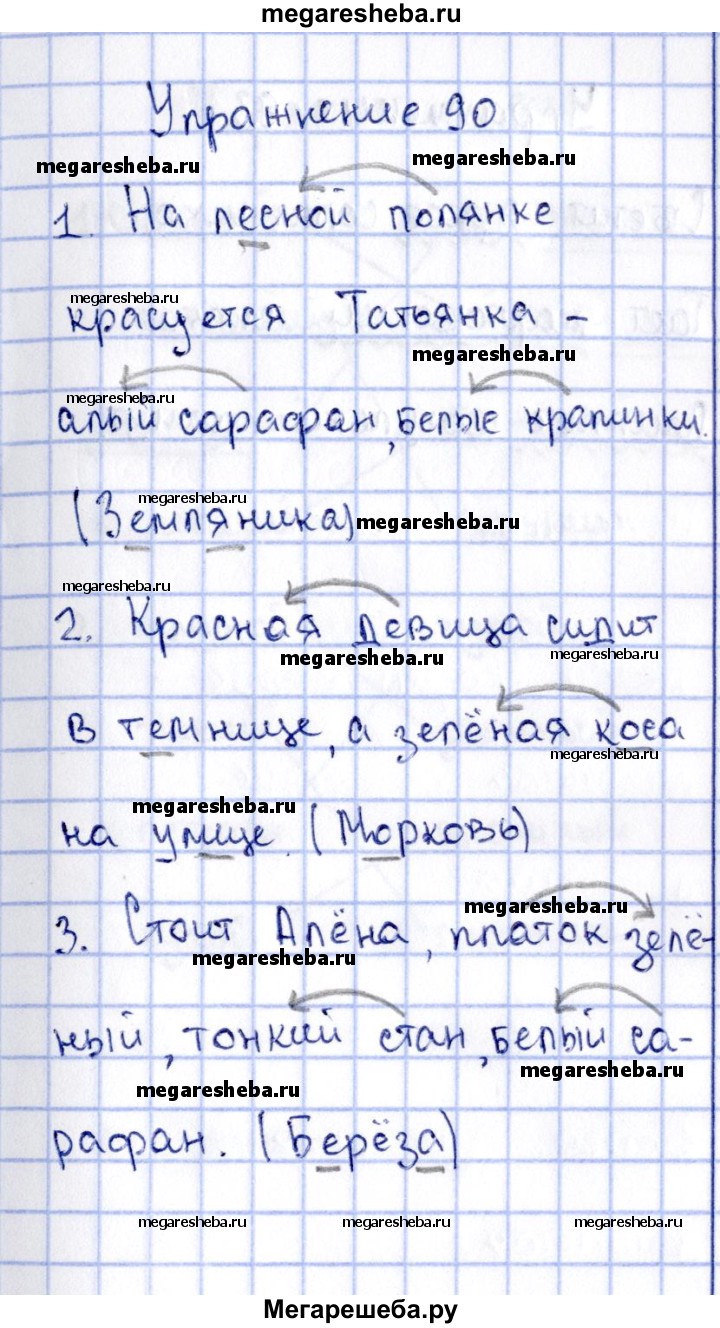 megaresheba.ru
Упражнение 90
megaresheba.ru
megaresheba.ru
1. На лесной полянке
megaresheba.ru
красуется Татьянка –
megaresheba.ru
megaresheba.ru
алый сарафан, белые крапинки.
megaresheba.ru
(Земляника)
megaresheba.ru
megaresheba.ru
2. Красная девица сидит
megaresheba.ru
megaresheba.ru
в темнице, а зелёная коса
megaresheba.ru
megaresheba.ru
на улице. (Морковь)
megaresheba.ru
3. Стоит Алёна, платок зелё-
megaresheba.ru
ный, тонкий стан, белый са-
megaresheba.ru
megaresheba.ru
рафан. (Берёза)
megaresheba.ru megaresheba.ru megaresheba.ru
Мегарешеба.ру